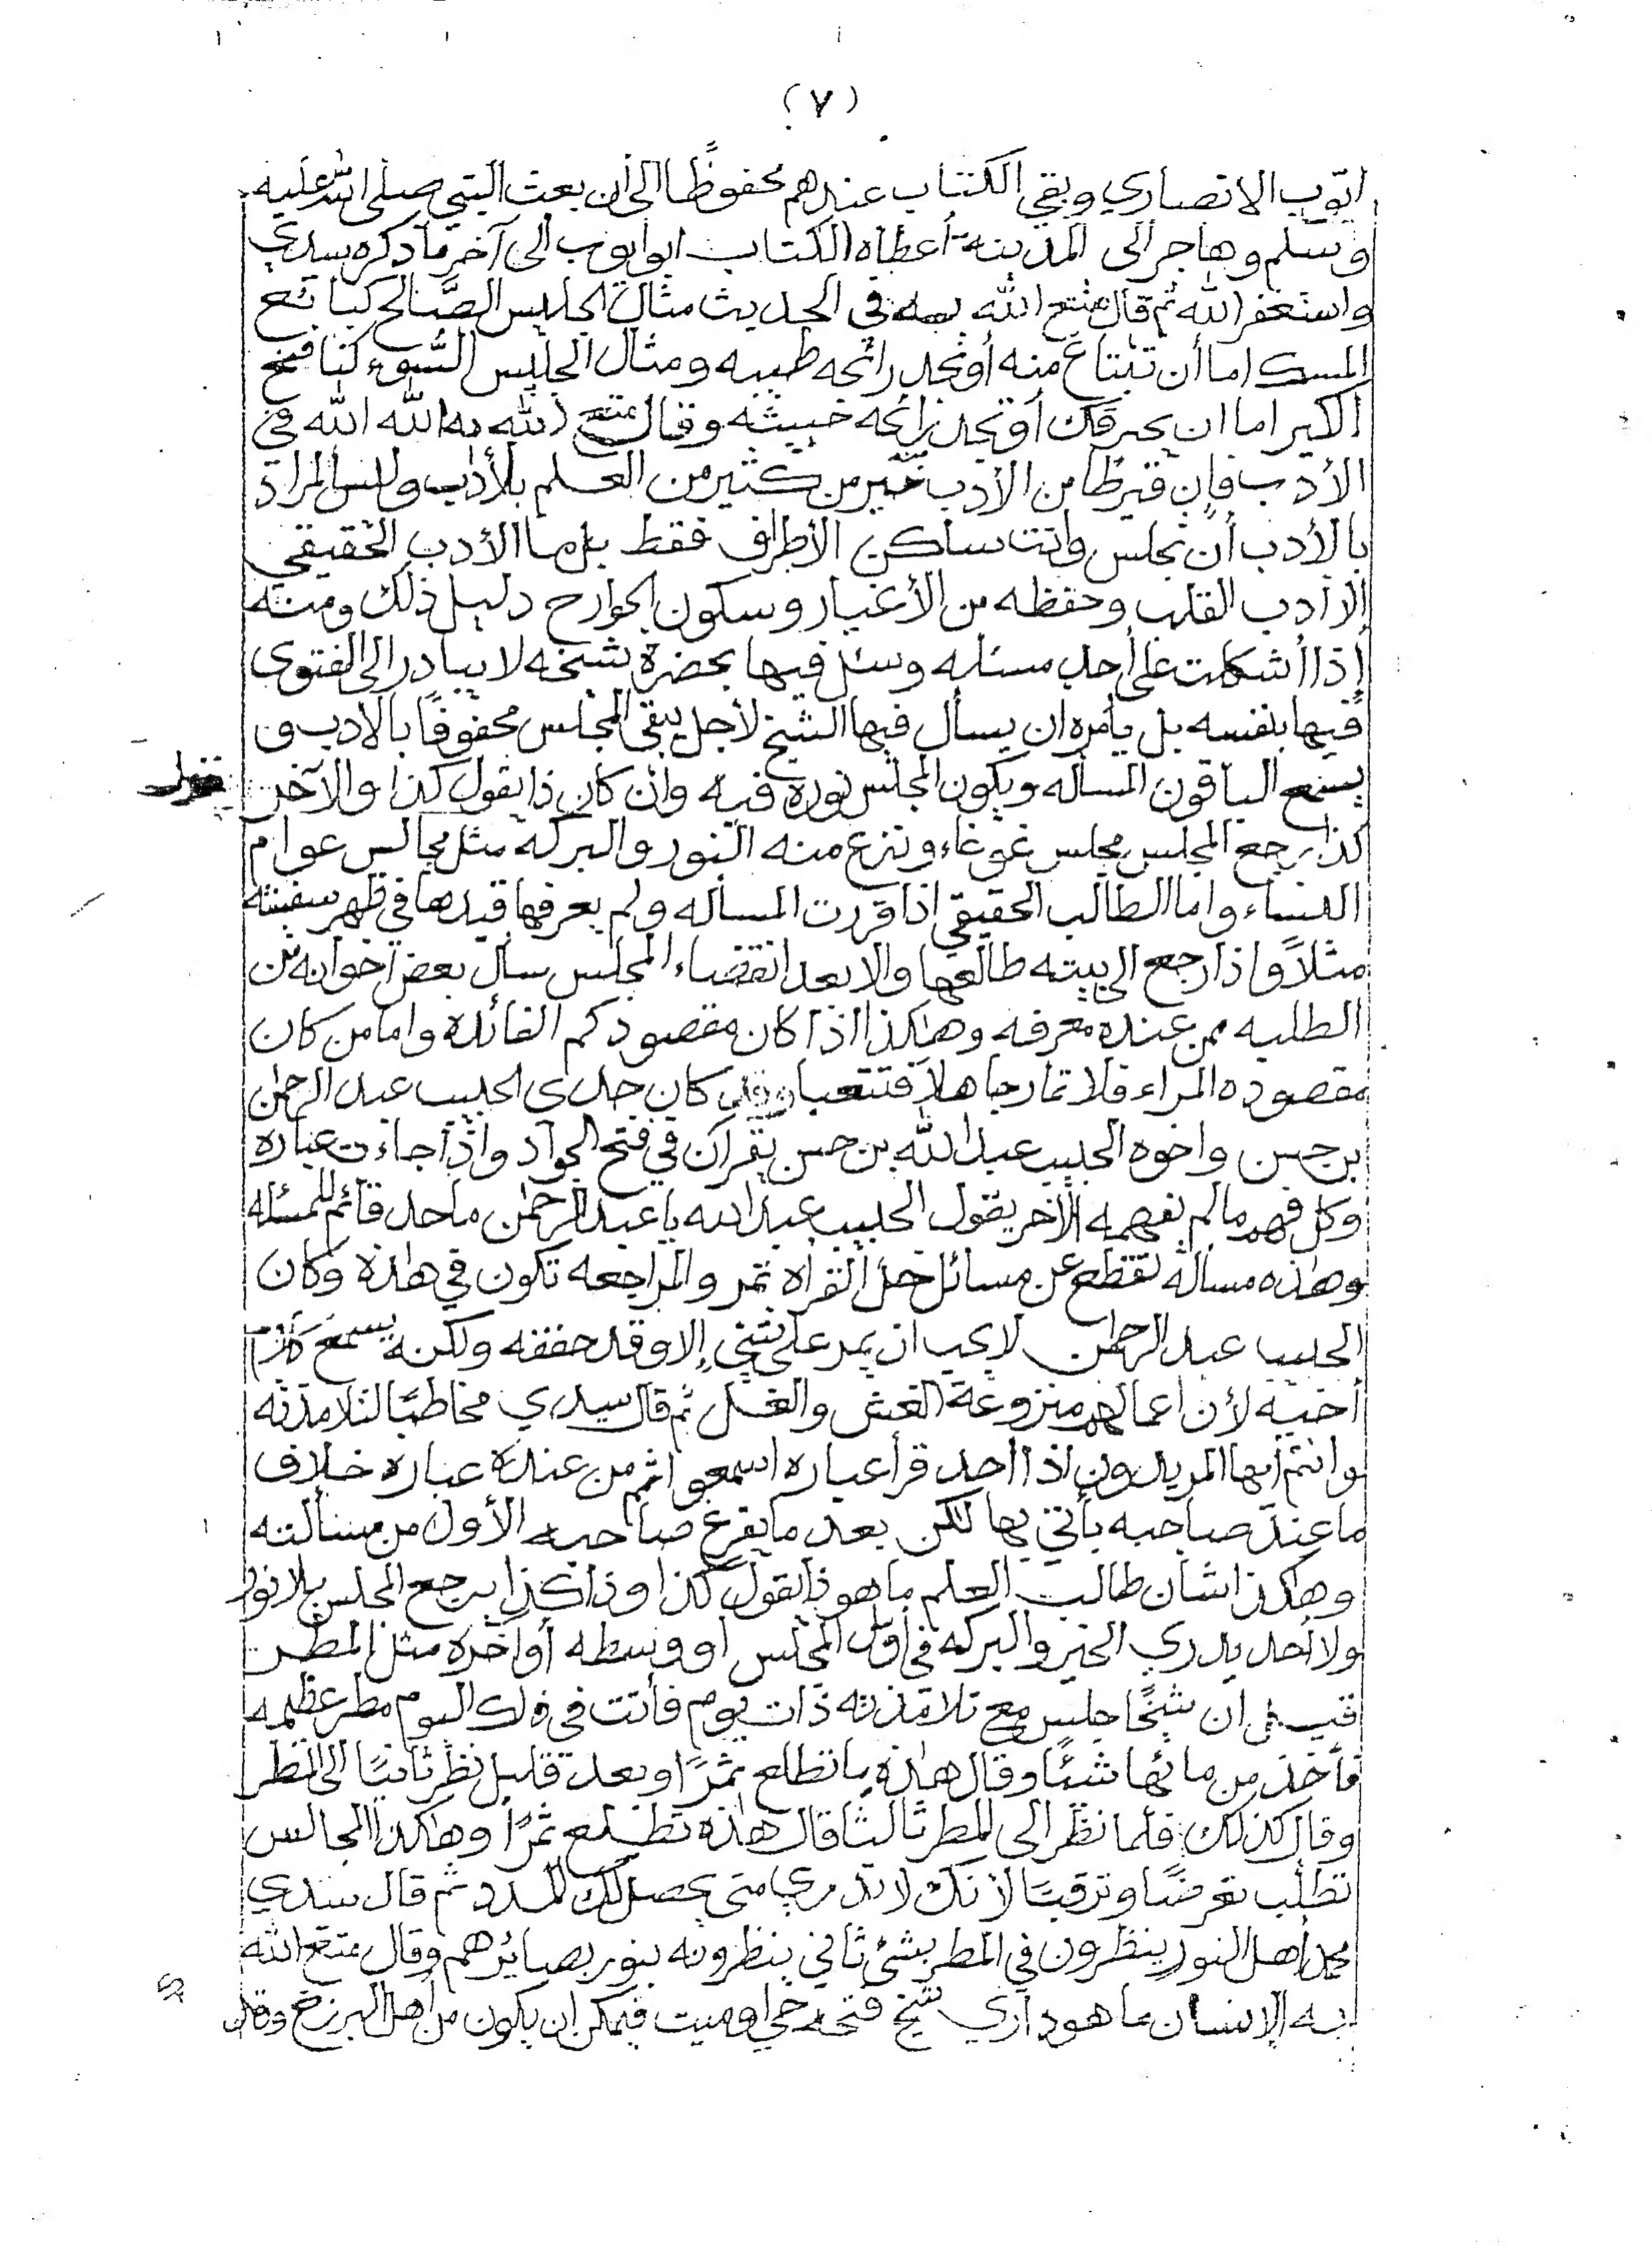 (٧)
ايّوب الانصاري وبقي الكتاب عندهم محفوظًا الى أن بعث النبي صلى الله عليه
وسلم وهاجر الى المدينة أعطاه الكتاب ابو ايوب الى آخر ما ذكره سيدي
واستغفر الله ثم قال متع الله به في الحديث مثال الجليس الصَّالح كبائع
المسك اما أن تبتاع منه أو تجد رائحه طيبه ومثال الجليس السُّوء كنافخ
الكير اما ان يحرقك أو تجد رائحه خبيثه وقال متع الله به الله الله في
الأدب فإن قيرطًا من الأدب خير من كثير من العلم بلا أدب وليس المراد
بالأدب أن تجلس وانت ساكن الأطراف فقط بل ما الأدب الحقيقي
إلا أدب القلب وحفظه من الأغيار وسكون الجوارح دليل ذلك ومنه
إذا أشكلت على أحد مسئله وسئل فيها بحضرة شيخه لا يبادر الى الفتوى
فيها بنفسه بل يأمره ان يسأل فيها الشيخ لأجل يبقى المجلس محفوفًا بالأدب و
يسمع الباقون المسأله ويكون المجلس نوره فيه وان كان ذا يقول كذا والآخر
كذا يرجع المجلس مجلس غوغاء وتنزع منه النّور والبركه مثل مجالس عوام
النساء واما الطالب الحقيقي اذا قررت المسأله ولم يعرفها قيدها في ظهر سفينته
مثلاً واذا رجع الى بيته طالعها والا بعد انقضاء المجلس سأل بعض اخوانه من
الطلبه ممن عنده معرفه وهاكذا اذا كان مقصودكم الفائدة واما من كان
مقصوده المراء فلا تمار جاهلاً فتتعبا وقد كان جدى الحبيب عبد الرحمن
بن حسن واخوه الحبيب عبد الله بن حسن يقرآن في فتح الجواد واذا جاءت عباره
وكل فهم ما لم يفهمه الآخر يقول الحبيب عبد الله يا عبد الرحمن ما حد قائم للمسئله
وهاذه مسأله تقطع عن مسائل خل القراه تمر والمراجعه تكون في هاذه وكان
الحبيب عبد الرحمن لا يحب ان يمر على شيٍ إلا وقد حققه ولكنه يسمع كلام
أخيه لأن اعمالهم منزوعة الغش والغل ثم قال سيدي مخاطبًا لتلامذته
وانتم أيها المريدون اذا أحد قرأ عباره اسمعوا ثم من عنده عباره خلاف
ما عند صاحبه يأتي بها لكن بعد ما يفرغ صاحبه الأول من مسألته
وهكذا شأن طالب العلم ما هو ذا يقول كذا وذا كذا يرجع المجلس بلا نور
ولا أحد يدري الخير والبركه في أوّل المجلس او وسطه أو آخره مثل المطر
قيل ان شيخًا جلس مع تلامذته ذات يوم فأتت في ذلك اليوم مطر عظيمه
فأخذ من مائها شيئًا وقال هاذه ما تطلع ثمرًا وبعد قليل نظر ثانيًا الى المطر
وقال كذلك فلما نظر الى المطر ثالثا قال هاذه تطلع ثمرًا وهاكذا المجالس
تطلب تعرضًا وترقبًا لأنك لا تدري متى يحصل لك المدد ثم قال سيدي
محمد أهل النور ينظرون في المطر بشئ ثاني ينظرونه بنور بصائرهم وقال متع الله
به الإنسان ما هو داري شيخ فتحه حي او ميت فيمكن ان يكون من أهل البرزخ وقد